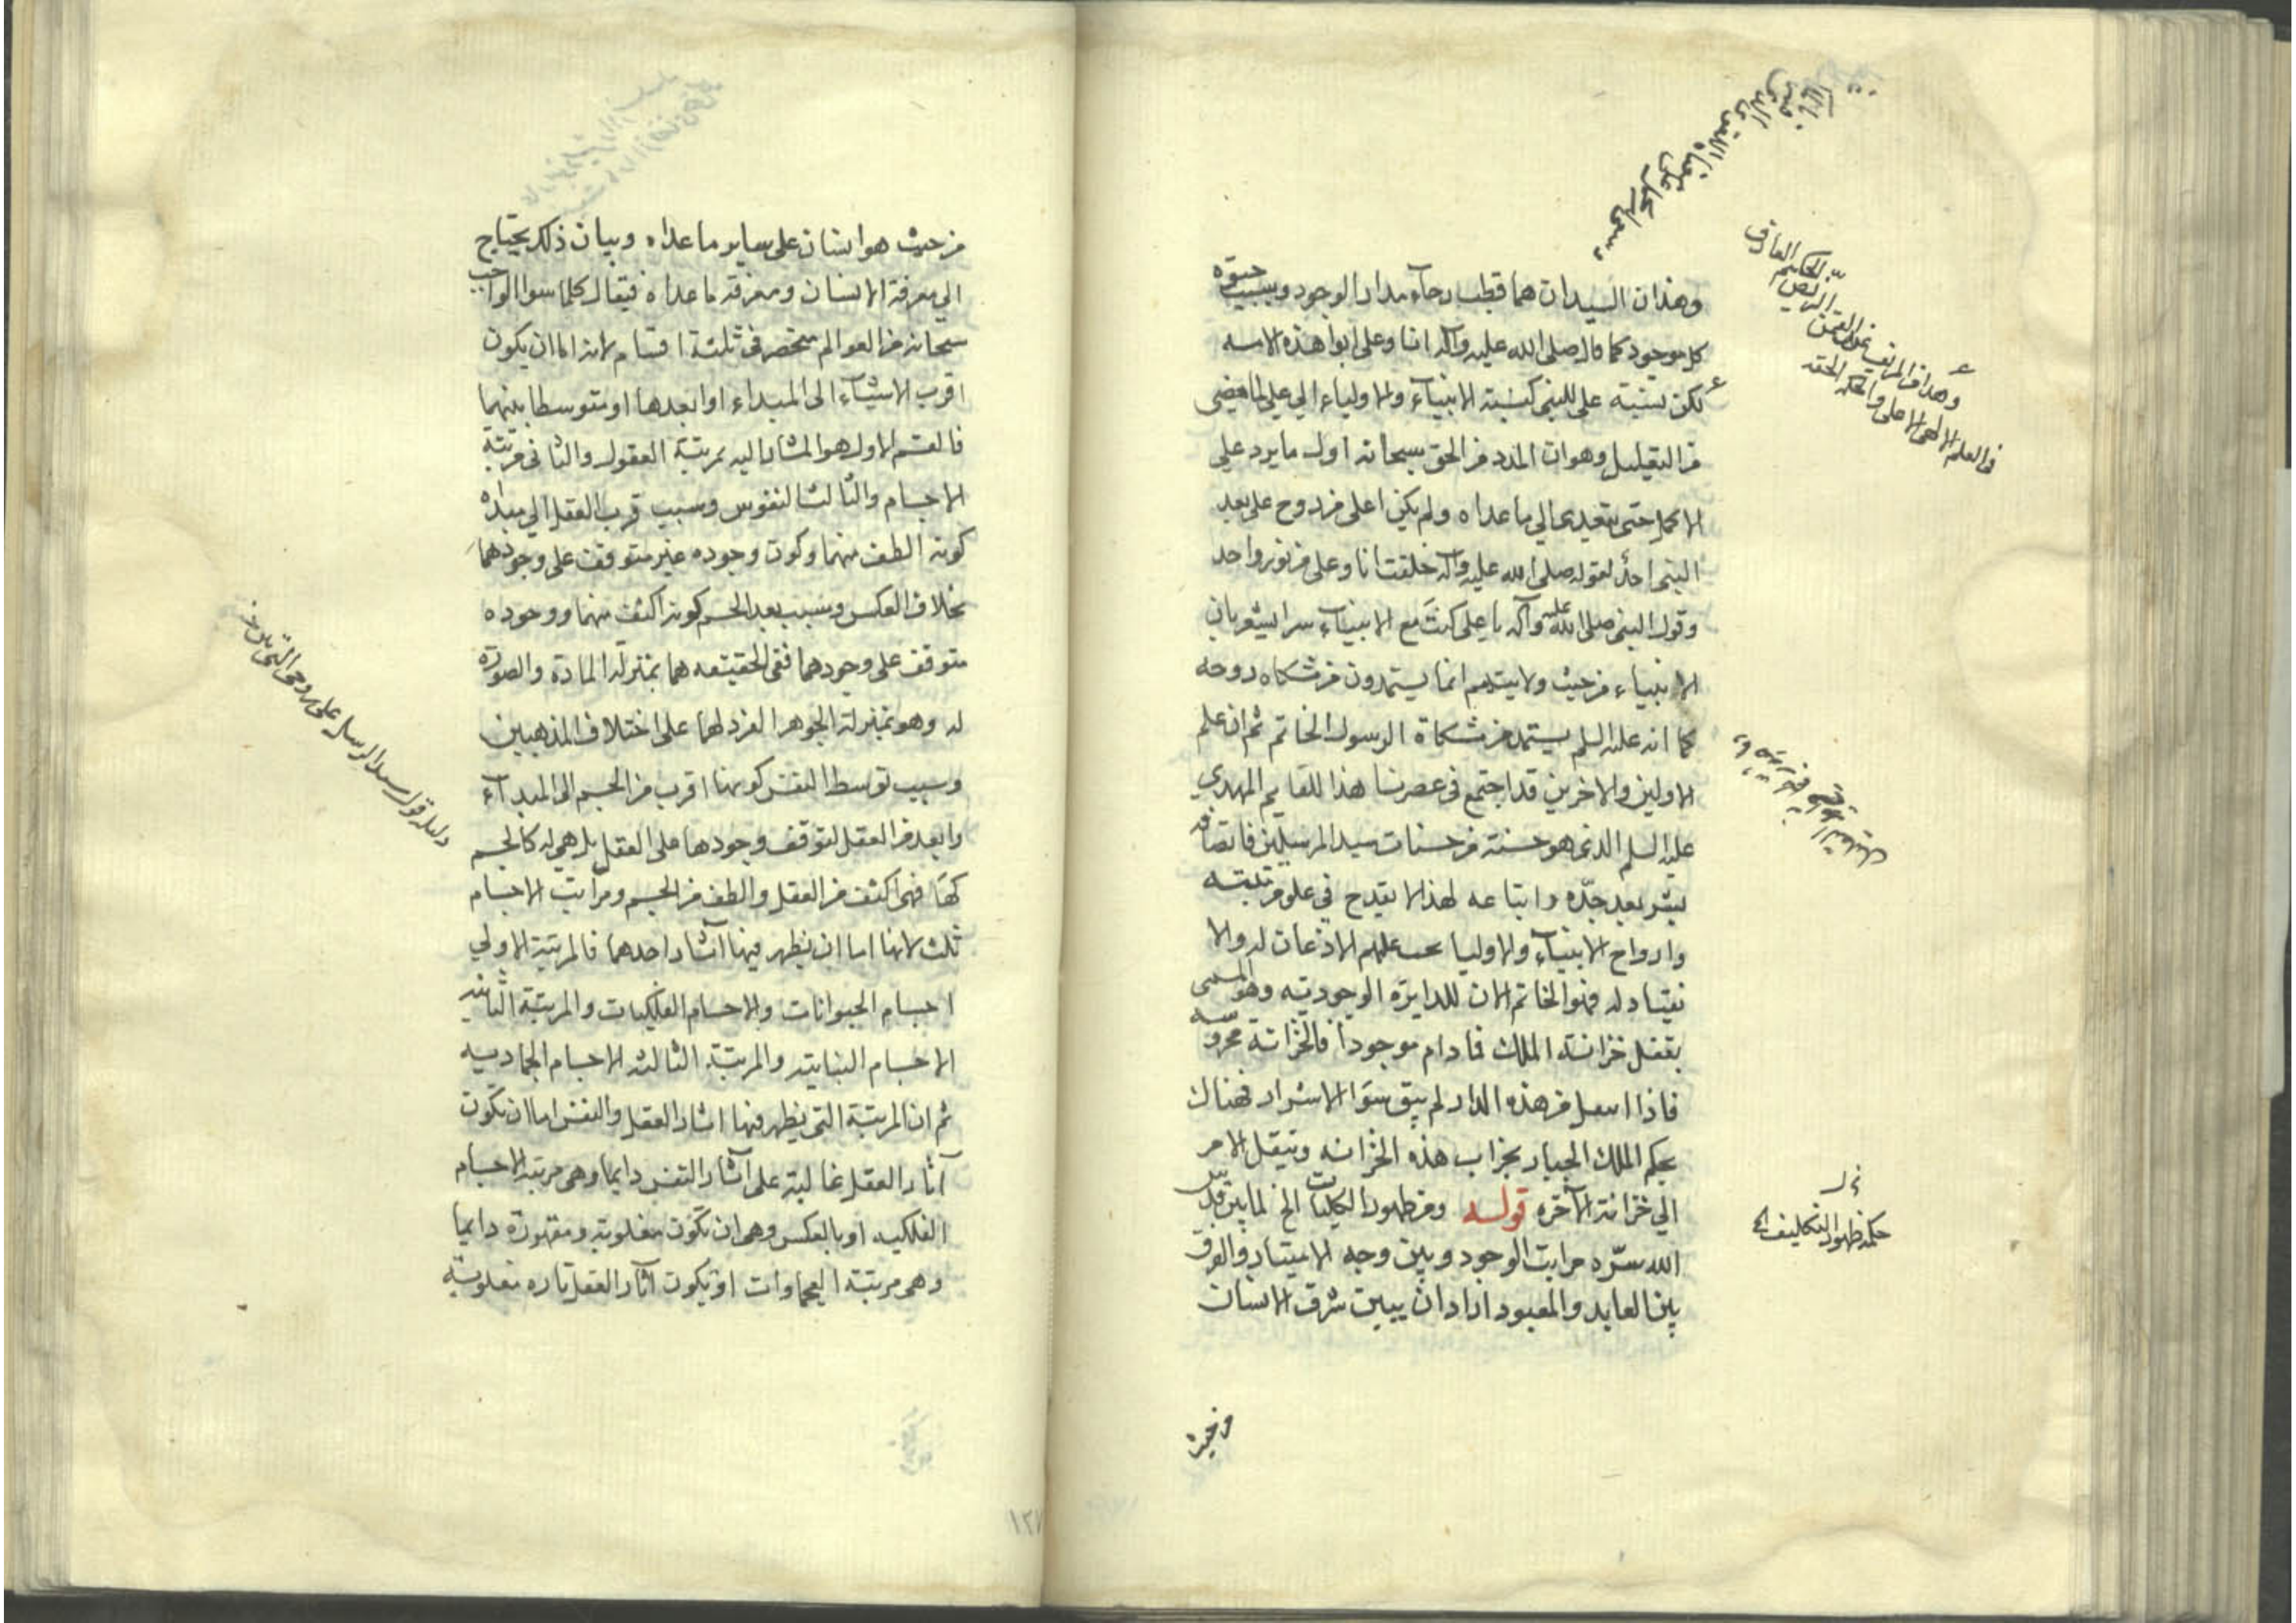 وهذان السيدان هما قطب رحآء مدار الوجود وبسببيته حيوة
كل موجود كما قال صلى الله عليه وآله انا وعلى ابوا هذه الامه
لكن نسبة على للنبى كنسبة الانبيآء والاولياء الي علي المغيضى
من التقليل وهو ان المدد من الحق سبحانه اول ما يرد على
الاكمل حتى يتعدى الي ما عداه ولم يكن اعلى من روح على بعد
النبى احدٌ لقوله صلى الله عليه وآله خلقت انا وعلى من نور واحد
وقول النبى صلى الله عليه وآله يا على كنتَ مع الانبيآء سرا يشعر بان
الانبياء من حيث ولايتهم انما يستمدون من مشكاه روحه
كما انه عليه السلم يستمد من مشكاة الرسول الخاتم ثم ان علم
الاولين والاخرين قد اجتمع فى عصرنا هذا للقايم المهدي
عليه السلم الذى هو حسنة من حسنات سيد المرسلين فاتصافه
بشر بعد جدّه واتباعه لهذا لا يقدح في علو مرتبته
وارواح الانبيآء والاوليا يجب عليهم الاذعان له والا
نقياد له فهو الخاتم الان للدايرة الوجوديه وهو المسمى
بقفل خزانة الملك فما دام موجوداً فالخزانة محروسه
فاذا انتقل من هذه الدار لم يبق سوَا الاشرار فهناك
يحكم الملك الجبار بخراب هذه الخزانه وينتقل الامر
الي خزانة الآخره قوله ومن ظهور الكليات الخ لما بين قدس
الله سرّه مراتب الوجود وبين وجه الامتياز والفرق
بين العابد والمعبود اراد ان يبين شرف الانسان
من حيث
حكمة ظهور التكليف الخ
وهذا فى المراتب
فى العلم الالهى الاعلى والحكمة الحقه
من حيث هو انسان على ساير ما عداه وبيان ذلك يحتاج
الي معرفة الانسان ومعرفة ما عداه فيقال كلما سوا الواجب
سبحانه من العوالم منحصر فى ثلثة اقسام لانه اما ان يكون
اقرب الاشيآء الى المبداء او ابعدها او متوسطا بينهما
فالقسم الاول هو المشار اليه بمرتبة العقول والثانى مرتبة
الاجسام والثالث النفوس وسبب قرب العقل الي مبداه
كونه الطف منهما وكون وجوده غير متوقف على وجودهما
بخلاف العكس وسبب بعد الجسم كونه اكثف منهما ووجوده
متوقف على وجودهما ففى الحقيقه هما بمنزلة المادة والصورة
له وهو بمنزلة الجوهر الفرد لهما على اختلاف المذهبين
وسبب توسط النفس كونها اقرب من الجسم الى المبدآء
وابعد من العقل لتوقف وجودها على العقل بل هى له كالجسم
لها فهى اكثف من العقل والطف من الجسم ومراتب الاجسام
ثلث لانها اما ان يظهر فيها آثار احدهما فالمرتبة الاولي
اجسام الحيوانات والاجسام الفلكيات والمرتبة الثانيه
الاجسام النباتيه والمرتبة الثالثه الاجسام الجماديه
ثم ان المرتبة التى يظهر فيها اثار العقل والنفس اما ان تكون
آثار العقل غالبة على آثار النفس دايما وهى مرتبة الاجسام
الفلكيه او بالعكس وهى ان تكون مغلوبة ومقهورة دايما
وهى مرتبة العجماوات او تكون آثار العقل تاره مغلوبة
دليله قول سيد الرسل على روحى التى بين